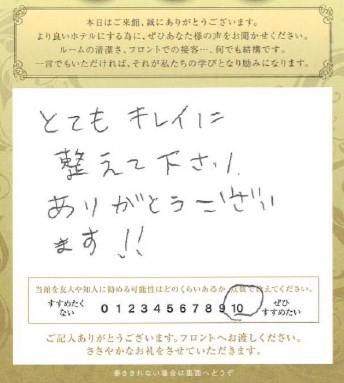 本日はご来館、誠にありがとうございます。
より良いホテルにする為に、ぜひあなた様の声をお聞かせください。
ルームの清潔さ、フロントでの接客…、何でも結構です。
一言でもいただければ、それが私たちの学びとなり励みになります。
とても キレイに
整えて下さり
ありがとうござい
ます!!
当館を友人や知人に勧める可能性はどのくらいあるか、点数で教えてください。
すすめたくない 0 1 2 3 4 5 6 7 8 9 10 ぜひすすめたい
ご記入ありがとうございます。フロントへお渡しください。
ささやかなお礼をさせていただきます。